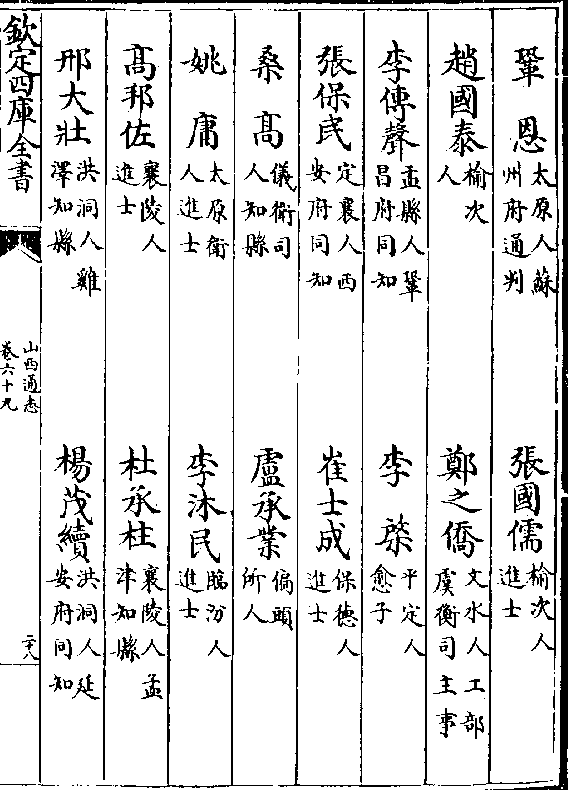 鞏恩太原人蘇州府通判　張國儒榆次人進士
趙國泰榆次人　鄭之僑文水人工部虞衡司主事
李傳聲盂縣人鞏昌府同知　李棨平定人愈子
張保民定襄人西安府同知　崔士成保德人進士
桑高儀衛司人知縣　盧承業偏頭所人
姚庸太原衛人進士　李沐民臨汾人進士
高邦佐襄陵人進士　杜承柱襄陵人孟津知縣
邢大壯洪洞人雞澤知縣　楊茂續洪洞人延安府同知
欽定四庫全書　山西通志卷六十九　二十八